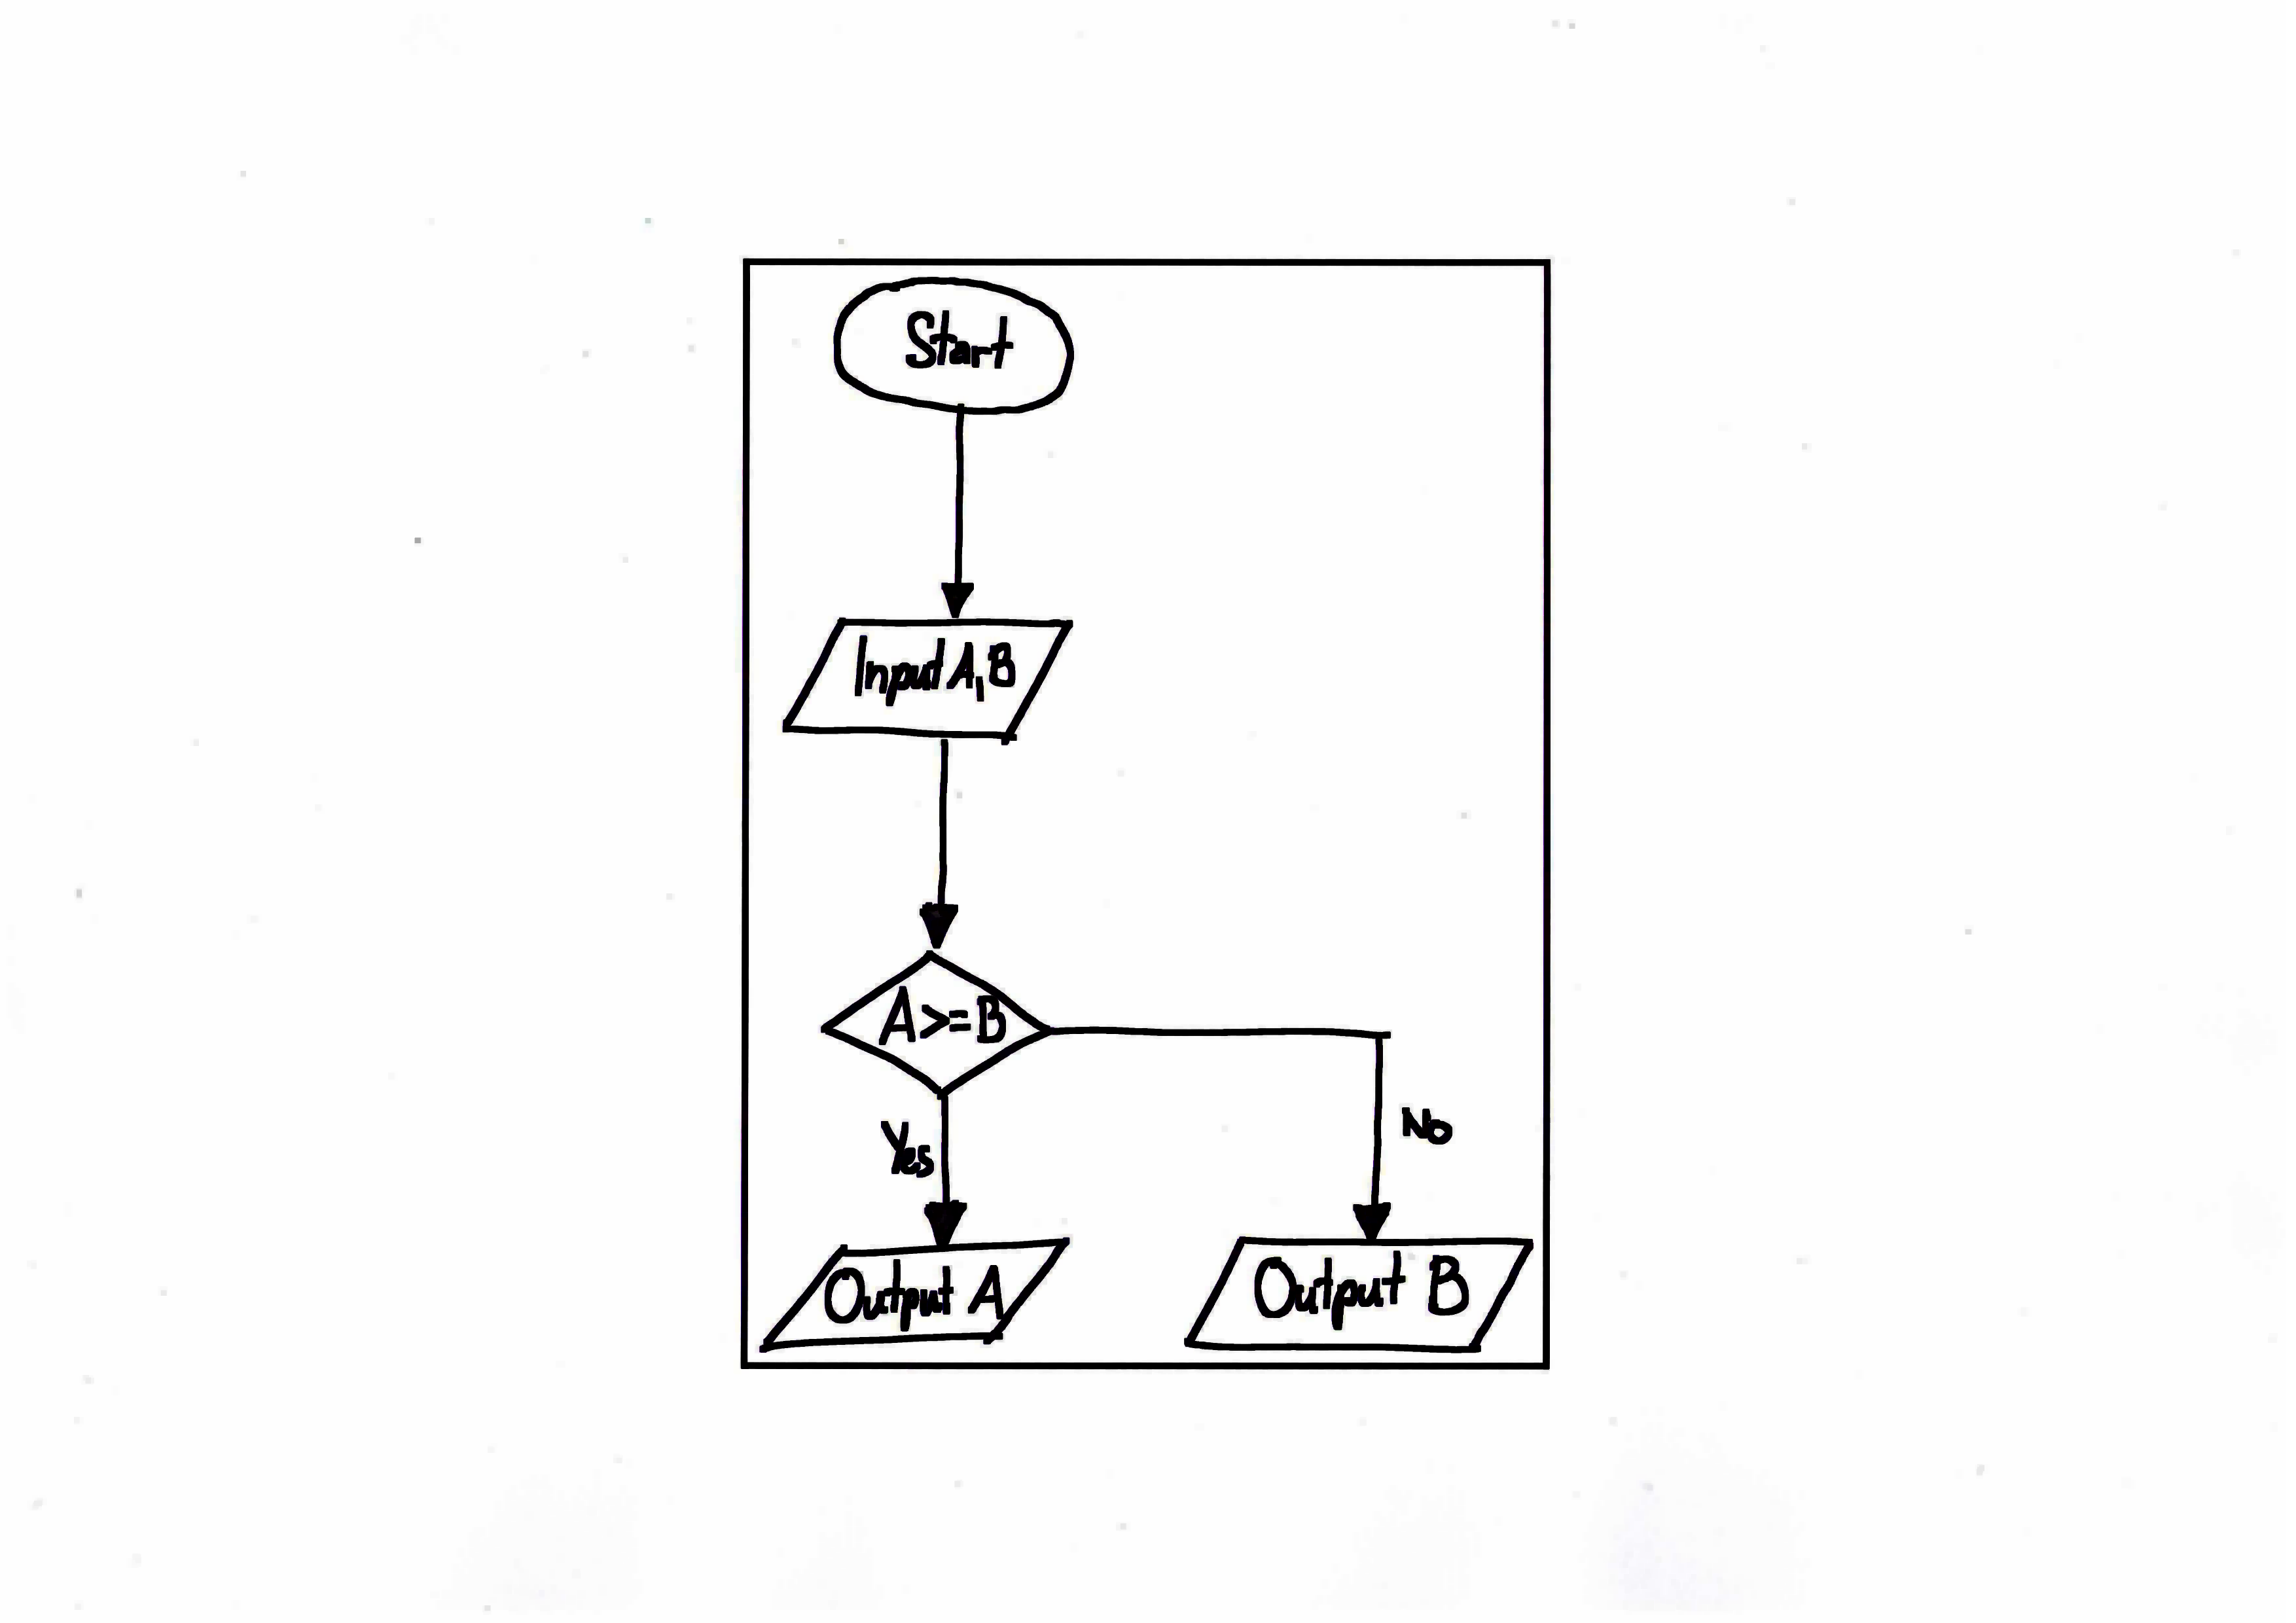 Start
Input A,B
A>=B
Yes
No
Output A
Output B